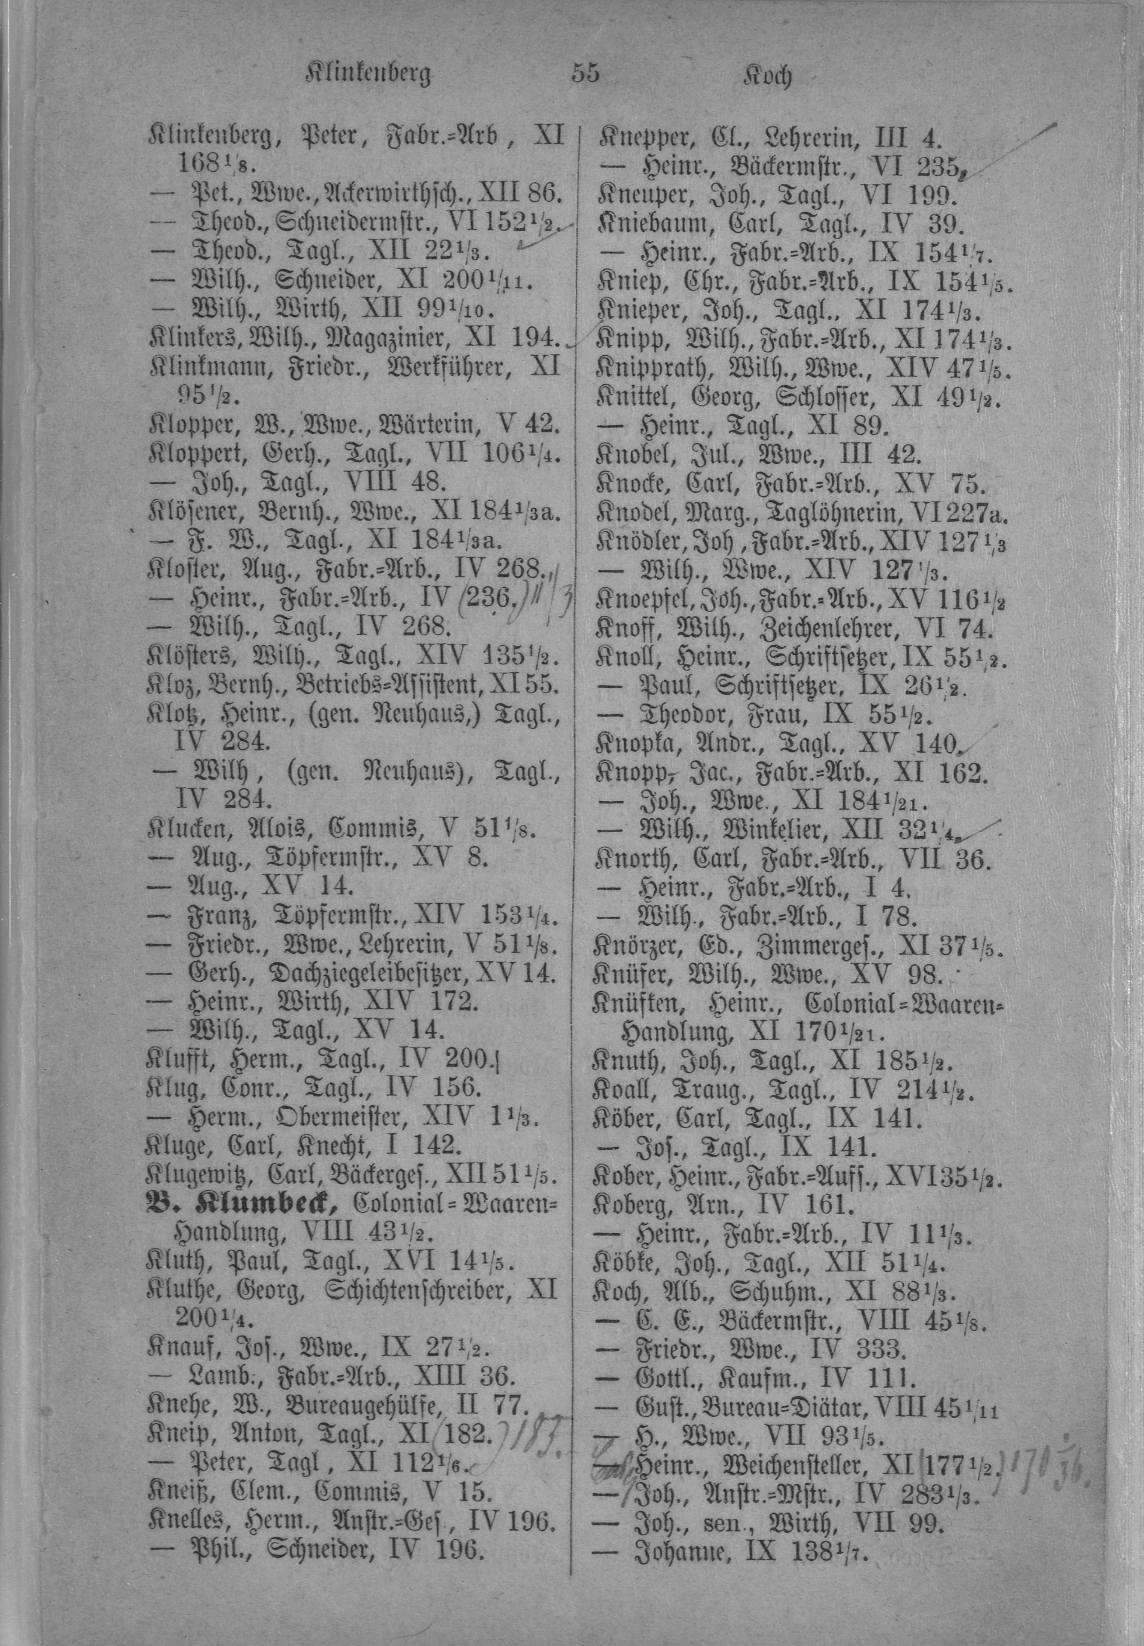 Klinkenberg 55 Koch
Klinkenberg, Peter, Fabr.=Arb, XI
168 1/8.
— Pet., Wwe., Ackerwirthsch., XII 86.
— Theod., Schneidermstr., VI 152 1/2.
— Theod., Tagl., XII 22 1/3.
— Wilh., Schneider, XI 200 1/11.
— Wilh., Wirth, XII 99 1/10.
Klinkers, Wilh., Magazinier, XI 194.
Klinkmann, Friedr., Werkführer, XI
95 1/2.
Klopper, W., Wwe., Wärterin, V 42.
Kloppert, Gerh., Tagl., VII 106 1/4.
— Joh., Tagl., VIII 48.
Klösener, Bernh., Wwe., XI 184 1/3a.
— F. W., Tagl., XI 184 1/3a.
Kloster, Aug., Fabr.=Arb., IV 268.
— Heinr., Fabr.=Arb., IV (236.)
— Wilh., Tagl., IV 268.
Klösters, Wilh., Tagl., XIV 135 1/2.
Kloz, Bernh., Betriebs=Assistent, XI 55.
Klotz, Heinr., (gen. Neuhaus,) Tagl.,
IV 284.
— Wilh, (gen. Neuhaus), Tagl.,
IV 284.
Klucken, Alois, Commis, V 51 1/8.
— Aug., Töpfermstr., XV 8.
— Aug., XV 14.
— Franz, Töpfermstr., XIV 153 1/4.
— Friedr., Wwe., Lehrerin, V 51 1/8.
— Gerh., Dachziegeleibesitzer, XV 14.
— Heinr., Wirth, XIV 172.
— Wilh., Tagl., XV 14.
Klufft, Herm., Tagl., IV 200.
Klug, Conr., Tagl., IV 156.
— Herm., Obermeister, XIV 1 1/3.
Kluge, Carl, Knecht, I 142.
Klugewitz, Carl, Bäckerges., XII 51 1/5.
B. Klumbeck, Colonial=Waaren=
Handlung, VIII 43 1/2.
Kluth, Paul, Tagl., XVI 14 1/5.
Kluthe, Georg, Schichtenschreiber, XI
200 1/4.
Knauf, Jos., Wwe., IX 27 1/2.
— Lamb., Fabr.=Arb., XIII 36.
Knehe, W., Bureaugehülfe, II 77.
Kneip, Anton, Tagl., XI (182.) 183.
— Peter, Tagl, XI 112 1/6.
Kneiß, Clem., Commis, V 15.
Knelles, Herm., Anstr.=Ges., IV 196.
— Phil., Schneider, IV 196.
Knepper, Cl., Lehrerin, III 4.
— Heinr., Bäckermstr., VI 235.
Kneuper, Joh., Tagl., VI 199.
Kniebaum, Carl, Tagl., IV 39.
— Heinr., Fabr.=Arb., IX 154 1/7.
Kniep, Chr., Fabr.=Arb., IX 154 1/5.
Knieper, Joh., Tagl., XI 174 1/3.
Knipp, Wilh., Fabr.=Arb., XI 174 1/3.
Knipprath, Wilh., Wwe., XIV 47 1/5.
Knittel, Georg, Schlosser, XI 49 1/2.
— Heinr., Tagl., XI 89.
Knobel, Jul., Wwe., III 42.
Knocke, Carl, Fabr.=Arb., XV 75.
Knodel, Marg., Taglöhnerin, VI 227a.
Knödler, Joh, Fabr.=Arb., XIV 127 1/3
— Wilh., Wwe., XIV 127 1/3.
Knoepfel, Joh., Fabr.=Arb., XV 116 1/2
Knoff, Wilh., Zeichenlehrer, VI 74.
Knoll, Heinr., Schriftsetzer, IX 55 1/2.
— Paul, Schriftsetzer, IX 26 1/2.
— Theodor, Frau, IX 55 1/2.
Knopka, Andr., Tagl., XV 140.
Knopp, Jac., Fabr.=Arb., XI 162.
— Joh., Wwe., XI 184 1/21.
— Wilh., Winkelier, XII 32 1/4.
Knorth, Carl, Fabr.=Arb., VII 36.
— Heinr., Fabr.=Arb., I 4.
— Wilh., Fabr.=Arb., I 78.
Knörzer, Ed., Zimmerges., XI 37 1/5.
Knüfer, Wilh., Wwe., XV 98.
Knüfken, Heinr., Colonial=Waaren=
Handlung, XI 170 1/21.
Knuth, Joh., Tagl., XI 185 1/2.
Koall, Traug., Tagl., IV 214 1/2.
Köber, Carl, Tagl., IX 141.
— Jos., Tagl., IX 141.
Kober, Heinr., Fabr.=Auff., XVI 35 1/2.
Koberg, Arn., IV 161.
— Heinr., Fabr.=Arb., IV 11 1/3.
Köbke, Joh., Tagl., XII 51 1/4.
Koch, Alb., Schuhm., XI 88 1/3.
— C. E., Bäckermstr., VIII 45 1/8.
— Friedr., Wwe., IV 333.
— Gottl., Kaufm., IV 111.
— Gust., Bureau=Diätar, VIII 45 1/11
— H., Wwe., VII 93 1/5.
— Heinr., Weichensteller, XI (177 1/2.) 170 1/36.
— Joh., Anstr.=Mstr., IV 283 1/3.
— Joh., sen., Wirth, VII 99.
— Johanne, IX 138 1/7.